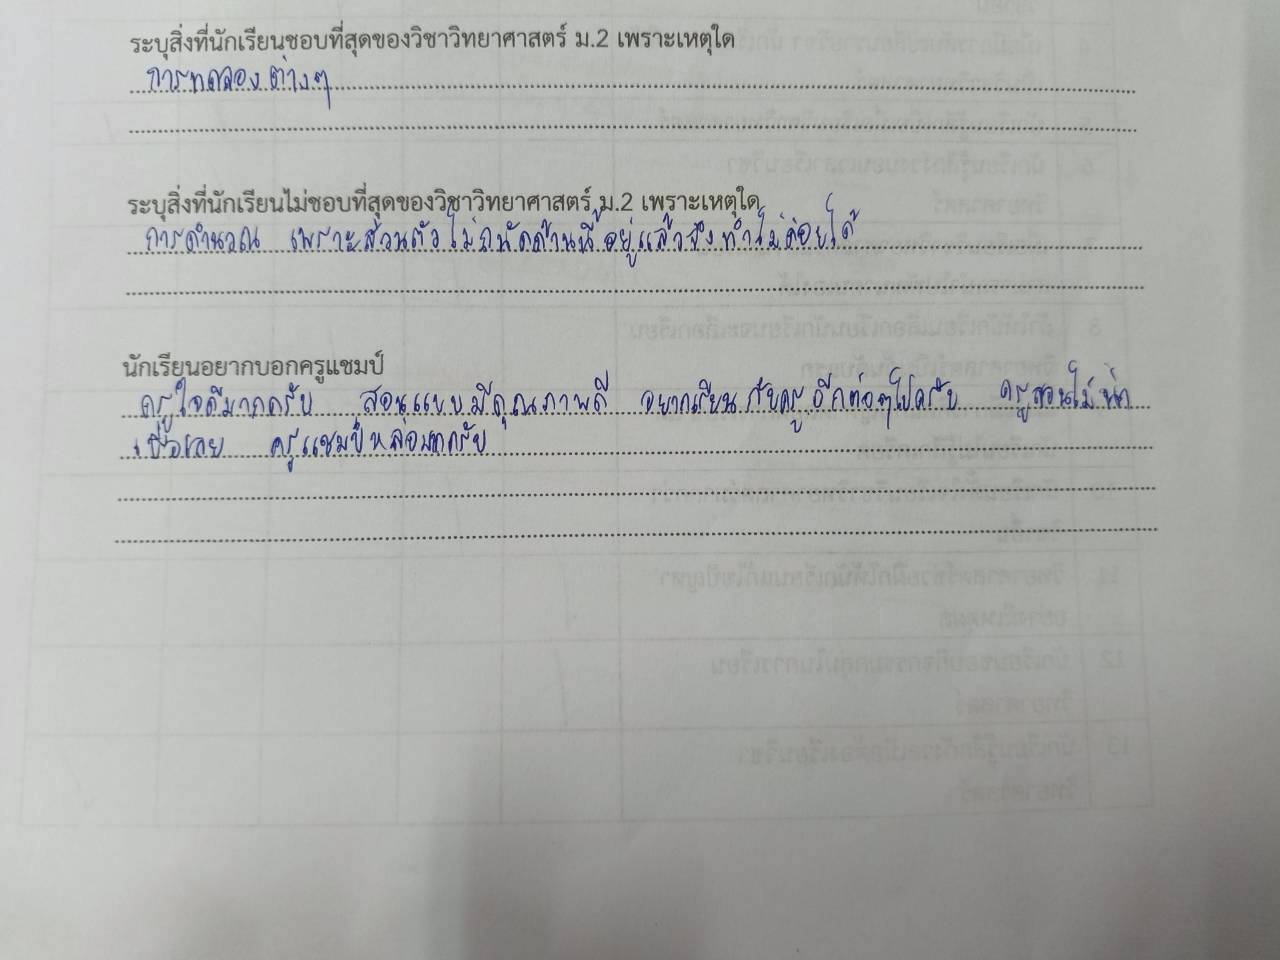 ระบุสิ่งที่นักเรียนชอบที่สุดของวิชาวิทยาศาสตร์ ม.2 เพราะเหตุใด
การทดลองต่างๆ
ระบุสิ่งที่นักเรียนไม่ชอบที่สุดของวิชาวิทยาศาสตร์ ม.2 เพราะเหตุใด
การคำนวณ เพราะส่วนตัวไม่ถนัดด้านนี้อยู่แล้วจึงทำไม่ค่อยได้
นักเรียนอยากบอกครูแชมป์
ครูใจดีมากครับ สอนแบบมีคุณภาพดี อยากเรียนกับครูอีกต่อๆไปครับ ครูสอนไม่น่า
เบื่อเลย ครูแชมป์หล่อมากครับ